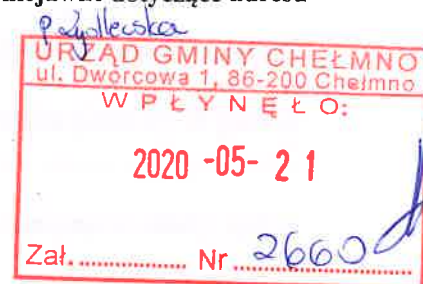 URZĄD GMINY CHEŁMNO
ul. Dworcowa 1, 86-200 Chełmno
WPŁYNĘŁO:
2020 -05- 21
Zał. ................ Nr 2660